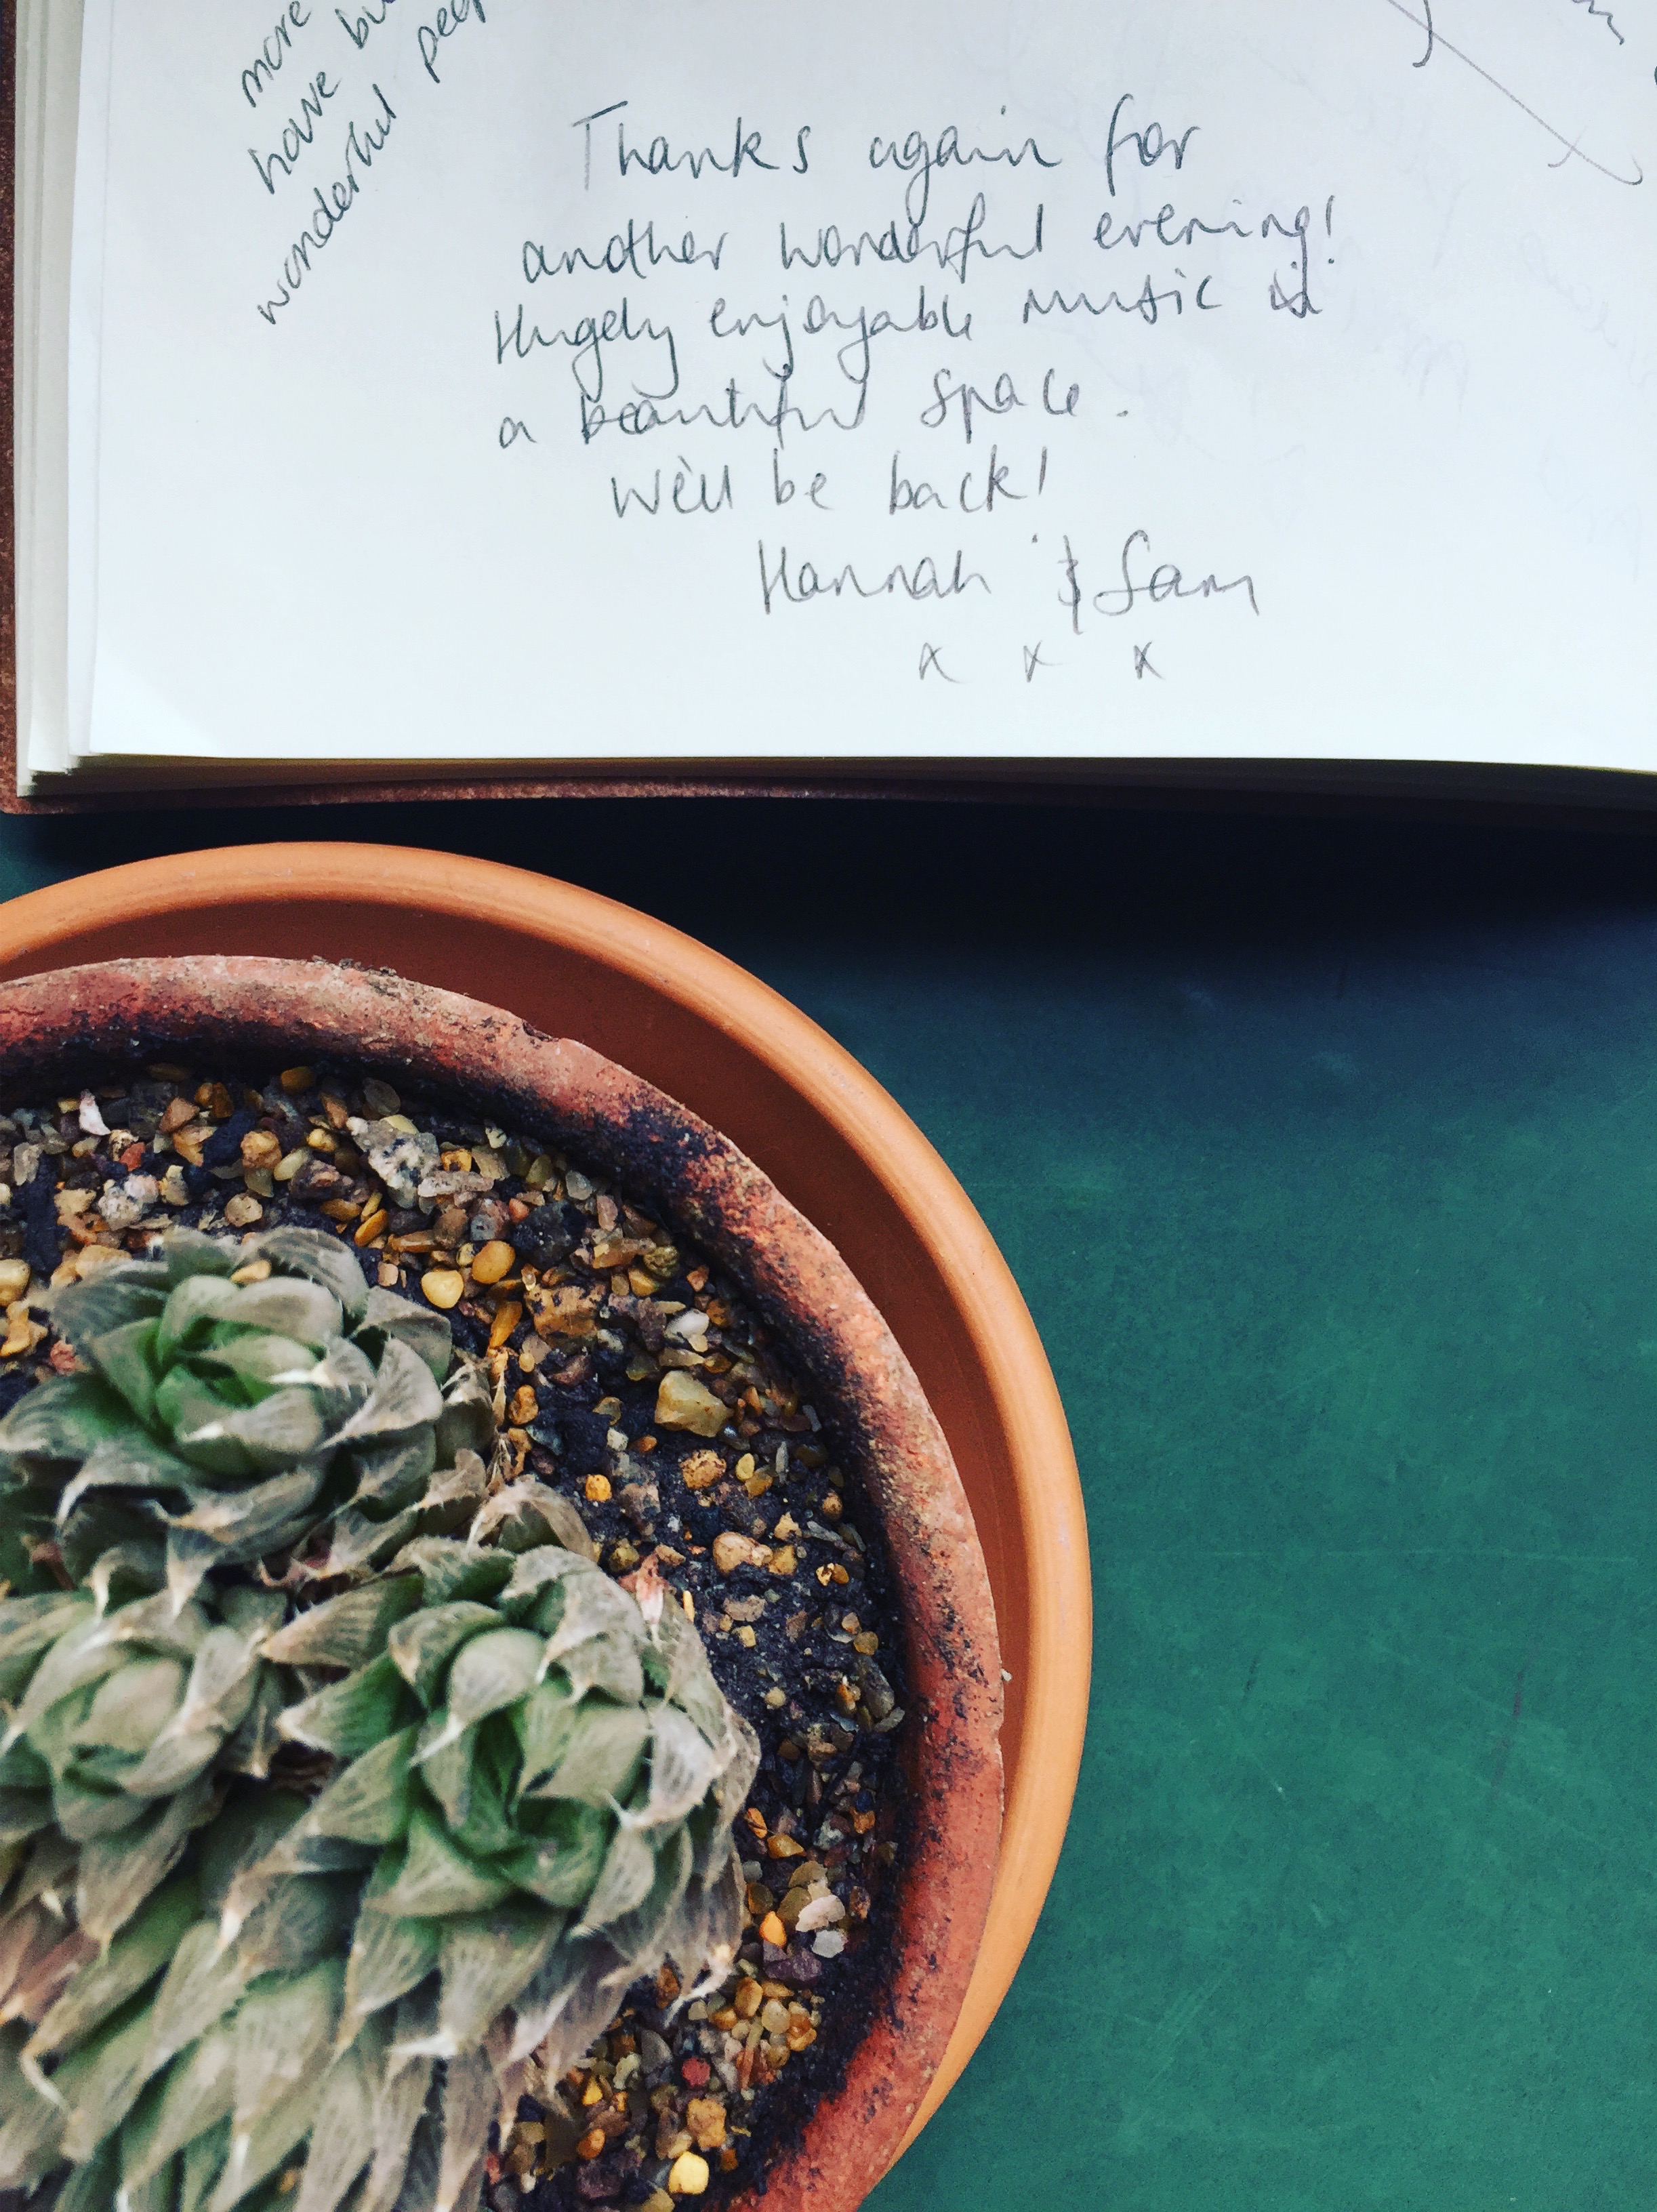 more
have
wonderful
Thanks again for
another wonderful evening!
Hugely enjoyable music in
a beautiful space.
We'll be back!
Hannah & Sam
x x x